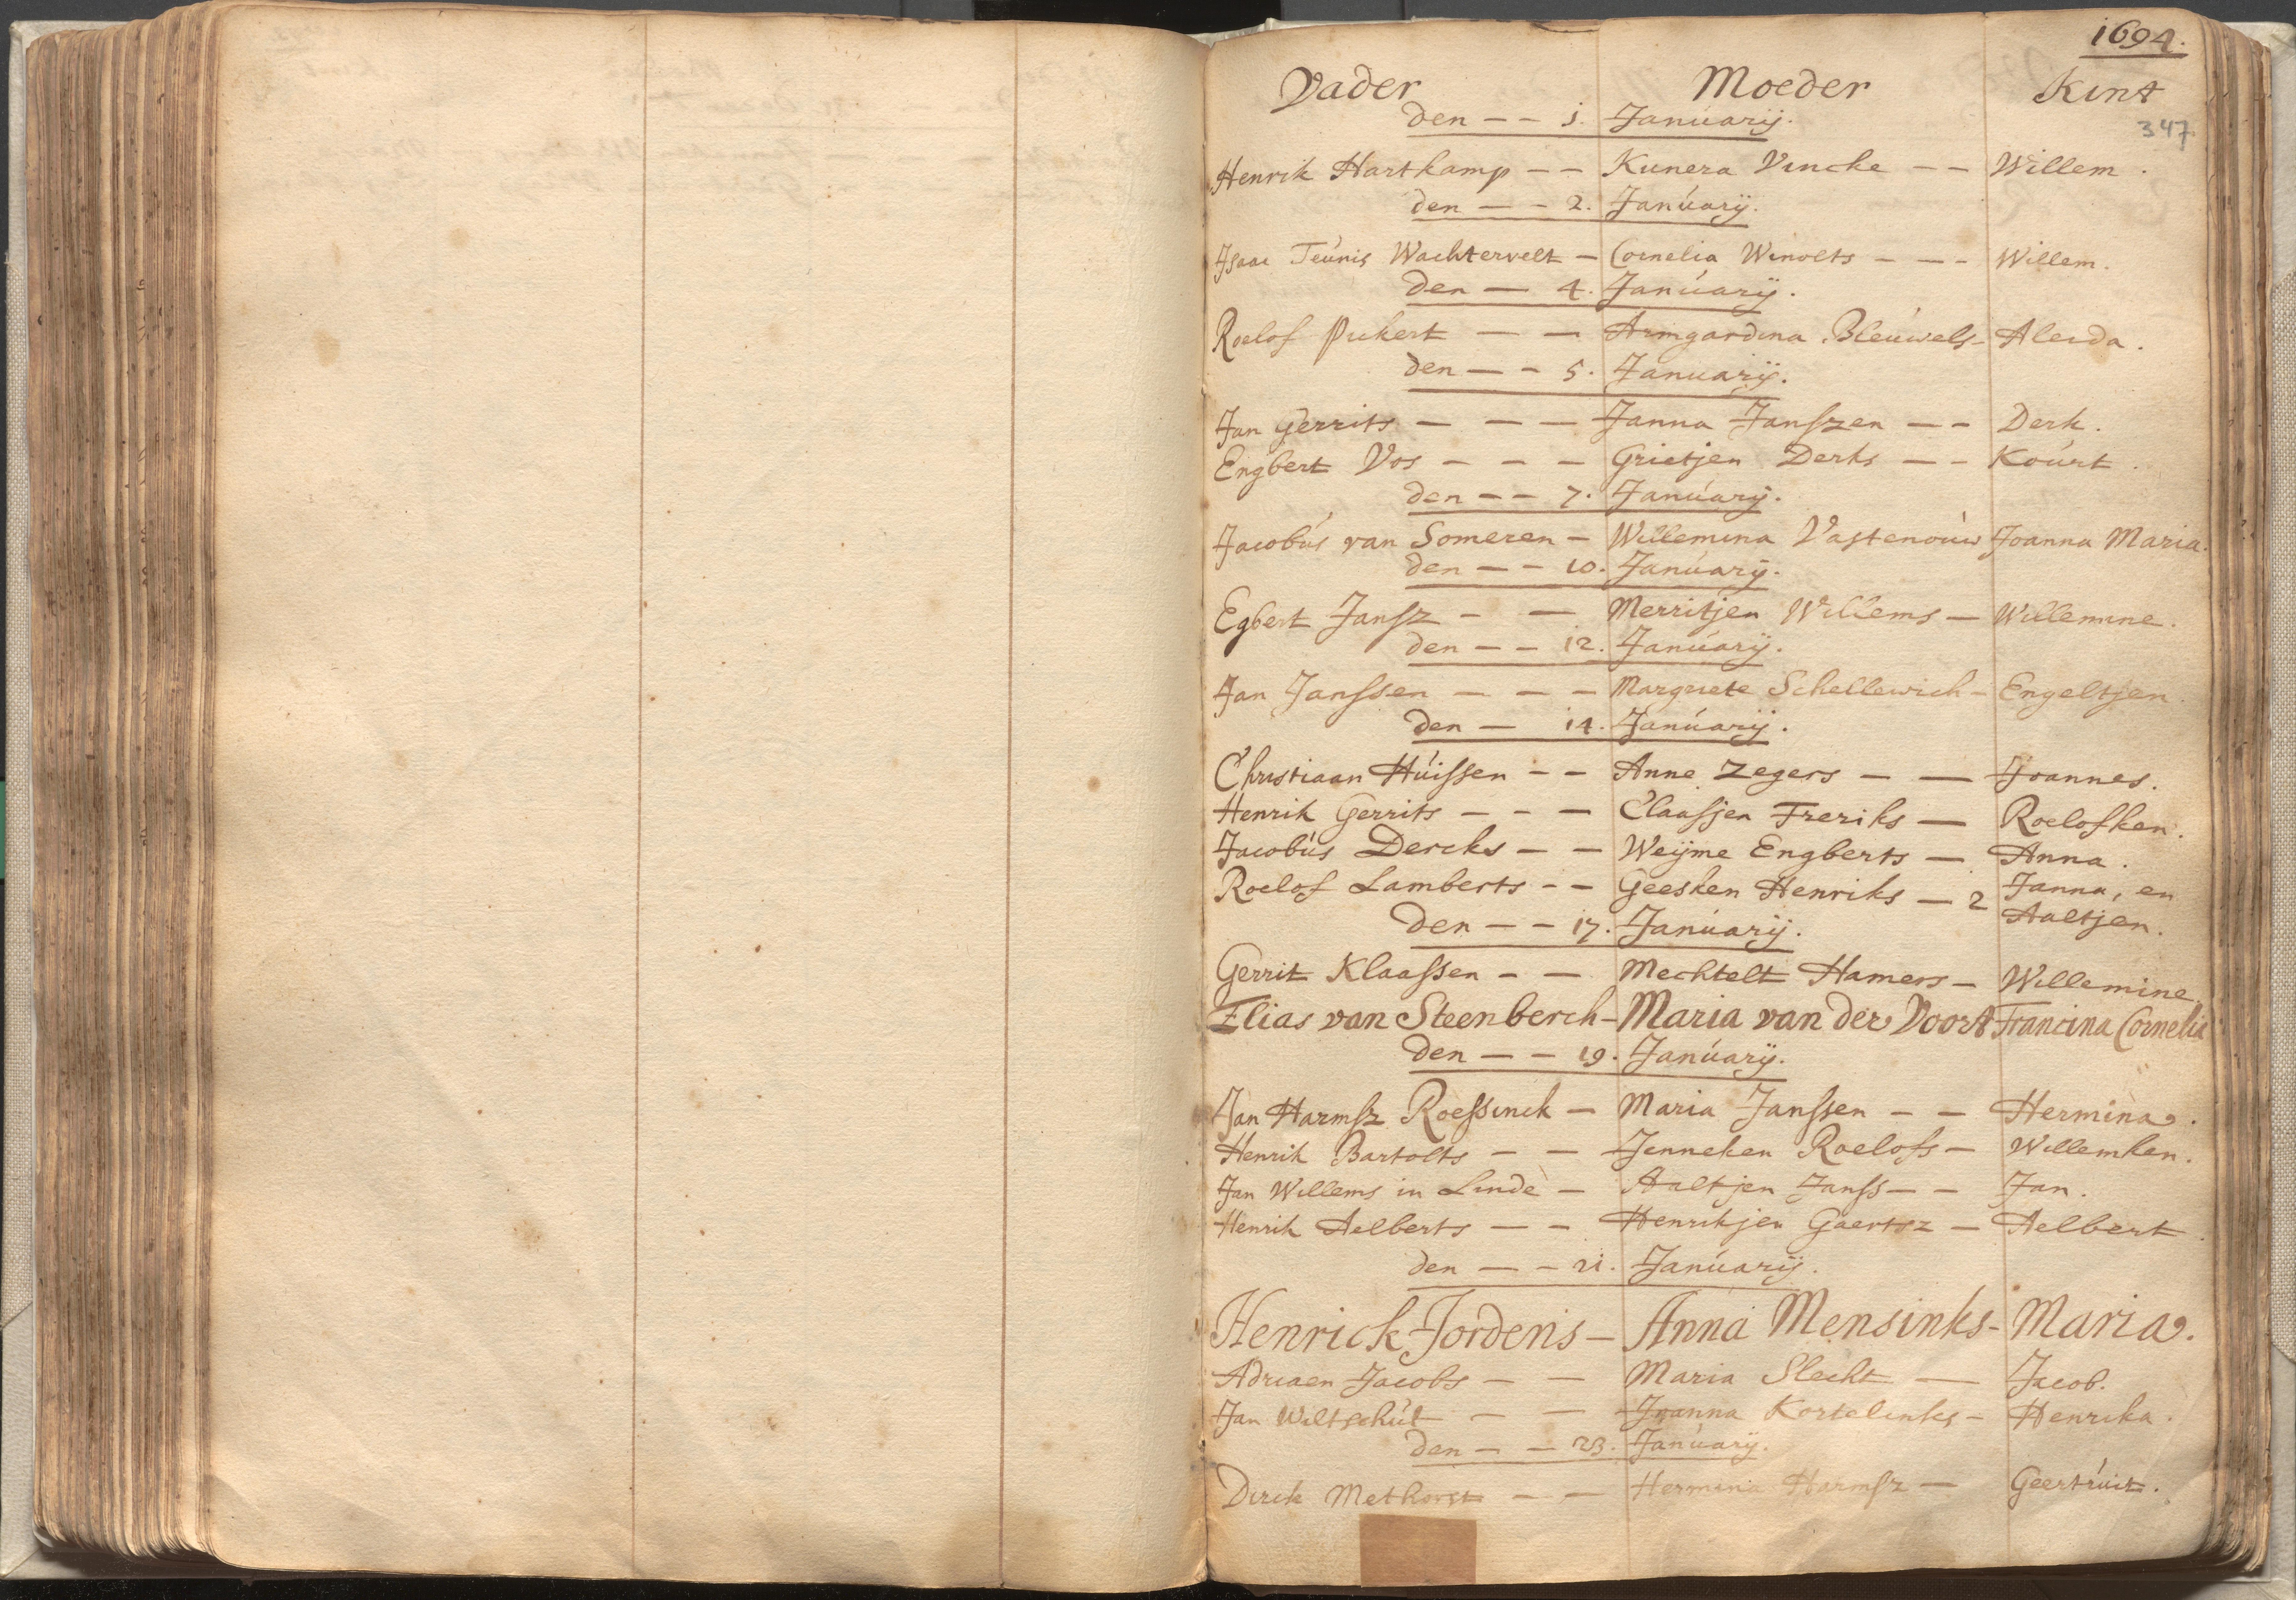 1694.
Vader Moeder Kint
347
den — — 1. Januarij.
Henrik Hartkamp — — Kunera Vincke — — Willem.
den — — 2. Januarij.
Isaac Teunis Wachtervelt — Cornelia Winolts — — — Willem.
den — 4. Januarij.
Roelof Pickert — — Armgardina Bleuwels — Aleida.
den — — 5. Januarij.
Jan Gerrits — — — Janna Janszen — — Derk.
Engbert Vos — — — Grietjen Derks — — Kourt.
den — — 7. Januarij.
Jacobus van Someren — Willemina Vastenouw Joanna Maria.
den — — 10. Januarij.
Egbert Jansz — — Merritjen Willems — Willemine.
den — — 12. Januarij.
Jan Janssen — — — Margriete Schellewich — Engeltjen.
den — 14. Januarij.
Christiaan Huissen — — Anne Zegers — — Joannes.
Henrik Gerrits — — — Claasjen Freriks — Roelofken.
Jacobus Dercks — — Weijme Engberts — Anna.
Roelof Lamberts — — Geesken Henriks — 2 Janna, en
Aaltjen.
den — — 17. Januarij.
Gerrit Klaassen — — Mechtelt Hamers — Willemine.
Elias van Steenberch — Maria van der Voort Francina Cornelia
den — — 19. Januarij.
Jan Harmsz Roessinck — Maria Janssen — — Hermina.
Henrik Bartolts — — Jenneken Roelofs — Willemken.
Jan Willems in Linde — Aaltjen Janss — — Jan.
Henrik Aelberts — — Henrikjen Gaertsz — Aelbert.
den — — 21. Januarij.
Henrick Jordens — Anna Mensinks — Maria.
Adriaen Jacobs — — Maria Slecht — Jacob.
Jan Wiltschut — — Joanna Kortelinks — Henrika.
den — — 23. Januarij.
Dirck Methorst — — Hermina Harmsz — Geertruit.